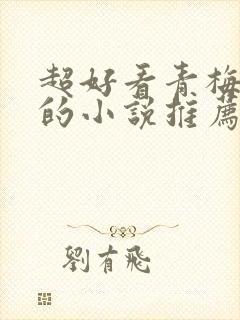 超好看青梅
的小說推薦
劉有飛